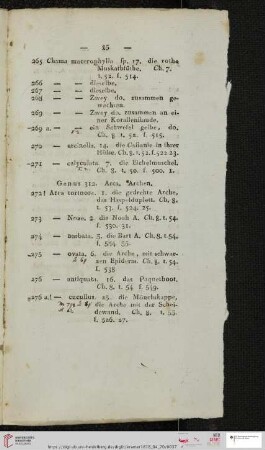 — 15 —
265 Chama macrophylla sp. 17. die rothe
Muskatblüthe, Ch. 7.
t. 52. f. 514.
266 — — dieselbe,
267 — — dieselbe,
268 — — Zwey do. zusammen ge-
wachsen.
269. — — Zwey do. zusammen an ei-
ner Korallenstaude.
269 a. — — ein Schwefel gelbe, do.
Ch. 8. t. 52. f. 515.
270 — arcinella. 14. die in ihrer
Höhe. Ch. 8. t. 52. f. 522. 23.
271 — calyculata 7. die
Ch. 8. t. 50. f. 500. 1.
Genus 312. Arca, Archen.
272 Arca tortuosa. 1. die gedrehte Arche,
das Ch. 8.
t. 53. f. 524. 25.
273 — Noae, 2. die Noah A. Ch. 8. t. 54.
f. 530. 31.
274 — barbata. 3. die Bart A. Ch. 8. t. 54.
f. 535.
275 — ovata, 6. die Arche, mit schwar-
zen Epiderm. Ch. 8. t. 54.
f. 538
276 — antiquata. 16. das Paquetboot,
Ch. 8. t. 54 f. 549.
276 a. — cucullus. 25. die Mönchskappe,
die Arche mit der Schei-
dewand, Ch. 8. t. 53.
f. 526. 27.